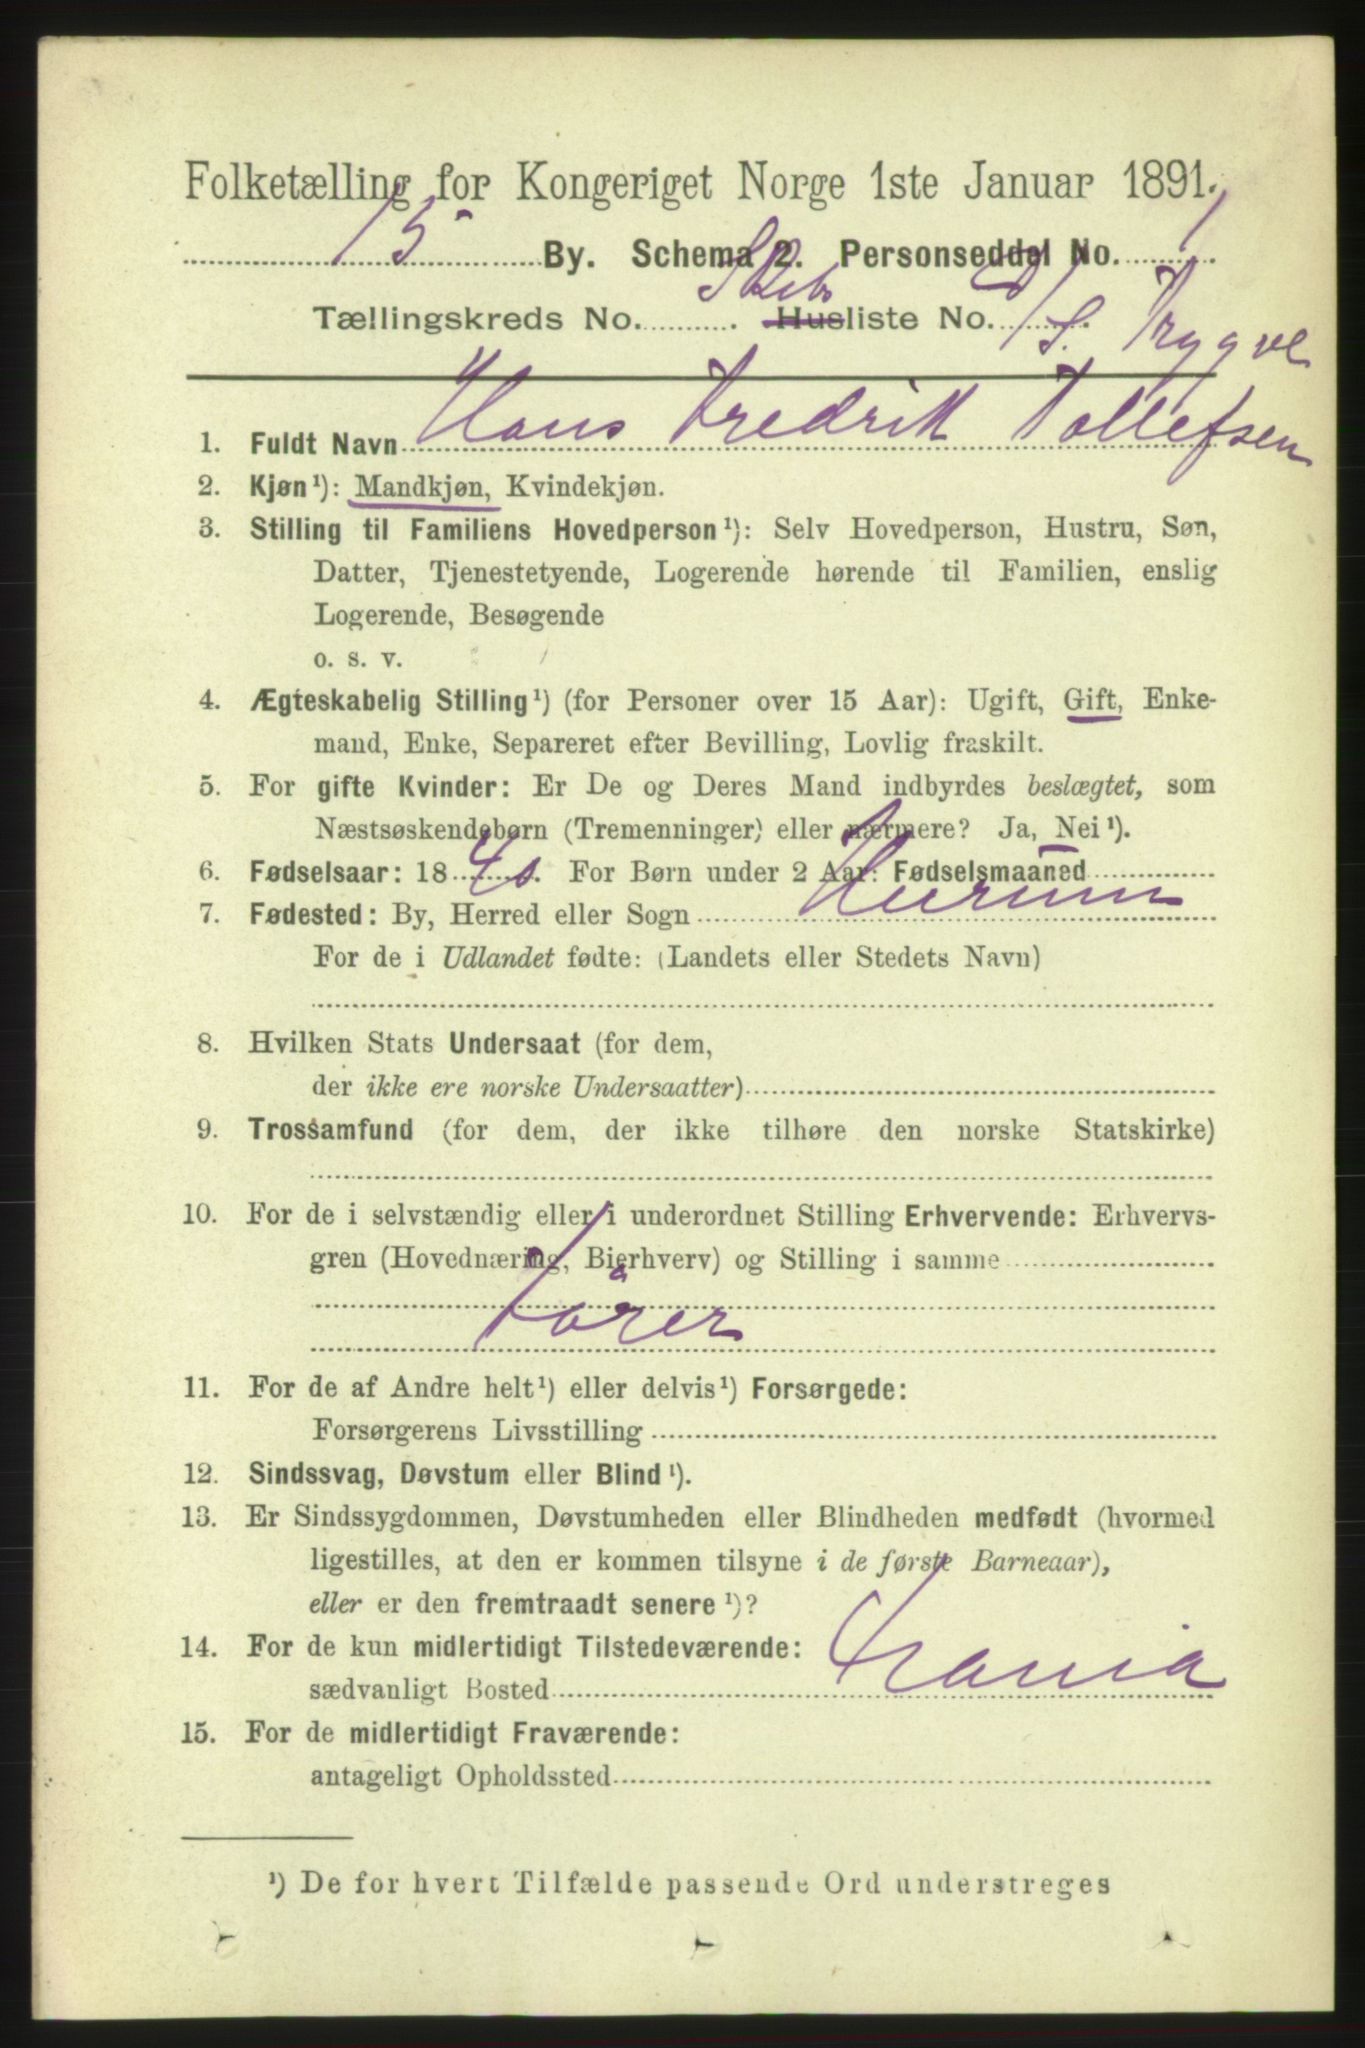 Folketælling for Kongeriget Norge 1ste Januar 1891.
15 By. Schema 2. Personseddel No. 1
Tællingskreds No. . Skibs Husliste No. D/S. Trygve
1. Fuldt Navn Hans Fredrik Tollefsen
2. Kjøn ¹): Mandkjøn, Kvindekjøn.
3. Stilling til Familiens Hovedperson ¹): Selv Hovedperson, Hustru, Søn,
Datter, Tjenestetyende, Logerende hørende til Familien, enslig
Logerende, Besøgende
o. s. v.
4. Ægteskabelig Stilling ¹) (for Personer over 15 Aar): Ugift, Gift, Enke-
mand, Enke, Separeret efter Bevilling, Lovlig fraskilt.
5. For gifte Kvinder: Er De og Deres Mand indbyrdes beslægtet, som
Næstsøskendebørn (Tremenninger) eller nærmere? Ja, Nei ¹).
6. Fødselsaar: 1840. For Børn under 2 Aar: Fødselsmaaned
7. Fødested: By, Herred eller Sogn Hurum
For de i Udlandet fødte: (Landets eller Stedets Navn)
8. Hvilken Stats Undersaat (for dem,
der ikke ere norske Undersaatter)
9. Trossamfund (for dem, der ikke tilhøre den norske Statskirke)
10. For de i selvstændig eller i underordnet Stilling Erhvervende: Erhvervs-
gren (Hovednæring, Bierhverv) og Stilling i samme
Förer
11. For de af Andre helt ¹) eller delvis ¹) Forsørgede:
Forsørgerens Livsstilling
12. Sindssvag, Døvstum eller Blind ¹).
13. Er Sindssygdommen, Døvstumheden eller Blindheden medfødt (hvormed
ligestilles, at den er kommen tilsyne i de første Barneaar),
eller er den fremtraadt senere ¹)?
14. For de kun midlertidigt Tilstedeværende:
sædvanligt Bosted
15. For de midlertidigt Fraværende:
antageligt Opholdssted
¹) De for hvert Tilfælde passende Ord understreges